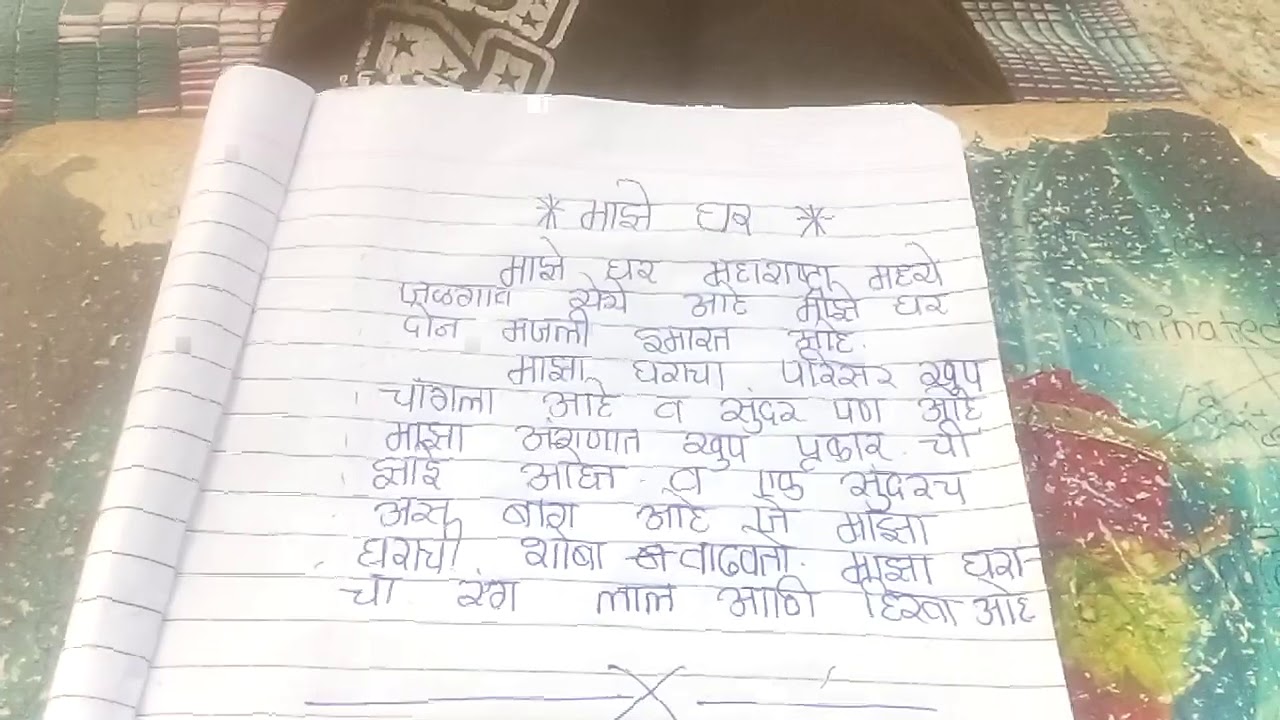 * माझे घर *
माझे घर महाराष्ट्रा मध्ये
जळगाव येथे आहे माझे घर
दोन मजली इमारत आहे.
माझा घराचा परिसर खुप
चांगला आहे व सुंदर पण आहे
माझा अंगणात खुप प्रकार ची
झाडे आहेत व एक सुंदरच
अस बाग आहे जे माझा
घराची शोबा वाढवतो. माझा घरा-
चा रंग लाल आणि हिरवा आहे